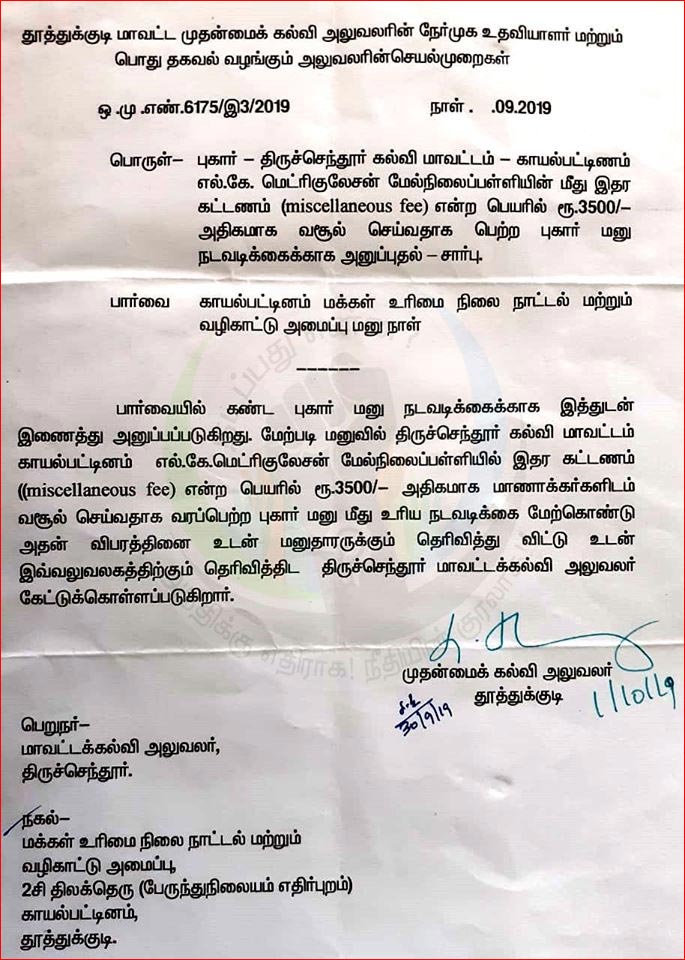 தூத்துக்குடி மாவட்ட முதன்மைக் கல்வி அலுவலரின் நேர்முக உதவியாளர் மற்றும்
பொது தகவல் வழங்கும் அலுவலரின்செயல்முறைகள்
ஒ.மு.எண்.6175/இ3/2019 நாள். .09.2019
பொருள்– புகார் – திருச்செந்தூர் கல்வி மாவட்டம் – காயல்பட்டிணம்
எல்.கே. மெட்ரிகுலேசன் மேல்நிலைப்பள்ளியின் மீது இதர
கட்டணம் (miscellaneous fee) என்ற பெயரில் ரூ.3500/–
அதிகமாக வசூல் செய்வதாக பெற்ற புகார் மனு
நடவடிக்கைக்காக அனுப்புதல் – சார்பு.
பார்வை காயல்பட்டினம் மக்கள் உரிமை நிலை நாட்டல் மற்றும்
வழிகாட்டு அமைப்பு மனு நாள்
------
பார்வையில் கண்ட புகார் மனு நடவடிக்கைக்காக இத்துடன்
இணைத்து அனுப்பப்படுகிறது. மேற்படி மனுவில் திருச்செந்தூர் கல்வி மாவட்டம்
காயல்பட்டினம் எல்.கே.மெட்ரிகுலேசன் மேல்நிலைப்பள்ளியில் இதர கட்டணம்
((miscellaneous fee) என்ற பெயரில் ரூ.3500/– அதிகமாக மாணாக்கர்களிடம்
வசூல் செய்வதாக வரப்பெற்ற புகார் மனு மீது உரிய நடவடிக்கை மேற்கொண்டு
அதன் விபரத்தினை உடன் மனுதாரருக்கும் தெரிவித்து விட்டு உடன்
இவ்வலுவலகத்திற்கும் தெரிவித்திட திருச்செந்தூர் மாவட்டக்கல்வி அலுவலர்
கேட்டுக்கொள்ளப்படுகிறார்.
எதிராக! நீதியின்
முதன்மைக் கல்வி அலுவலர்
தூத்துக்குடி
1/10/19
30/9/19
பெறுநர்–
மாவட்டக்கல்வி அலுவலர்,
திருச்செந்தூர்.
நகல்–
மக்கள் உரிமை நிலை நாட்டல் மற்றும்
வழிகாட்டு அமைப்பு,
2சி திலக்தெரு (பேருந்துநிலையம் எதிர்புறம்)
காயல்பட்டினம்,
தூத்துக்குடி.